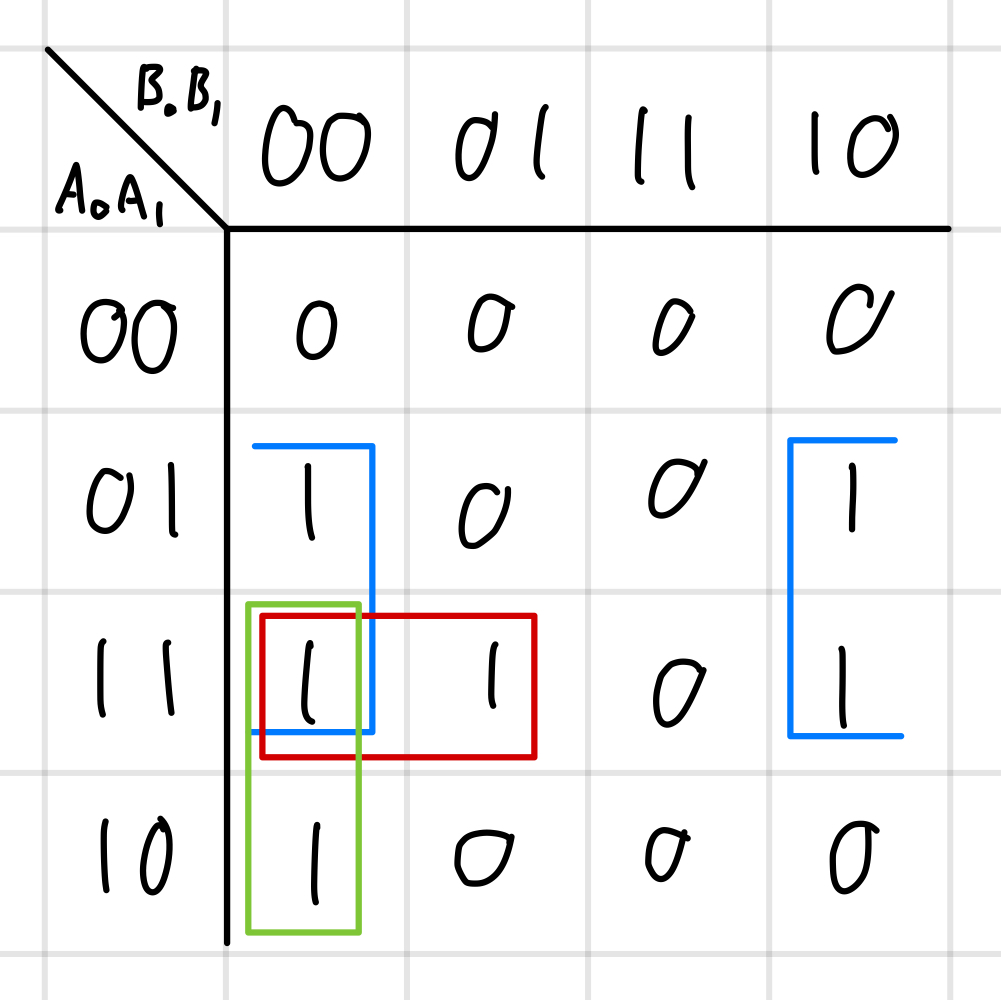 B₀B₁
A₀A₁
00 01 11 10
00 0 0 0 0
01 1 0 0 1
11 1 1 0 1
10 1 0 0 0